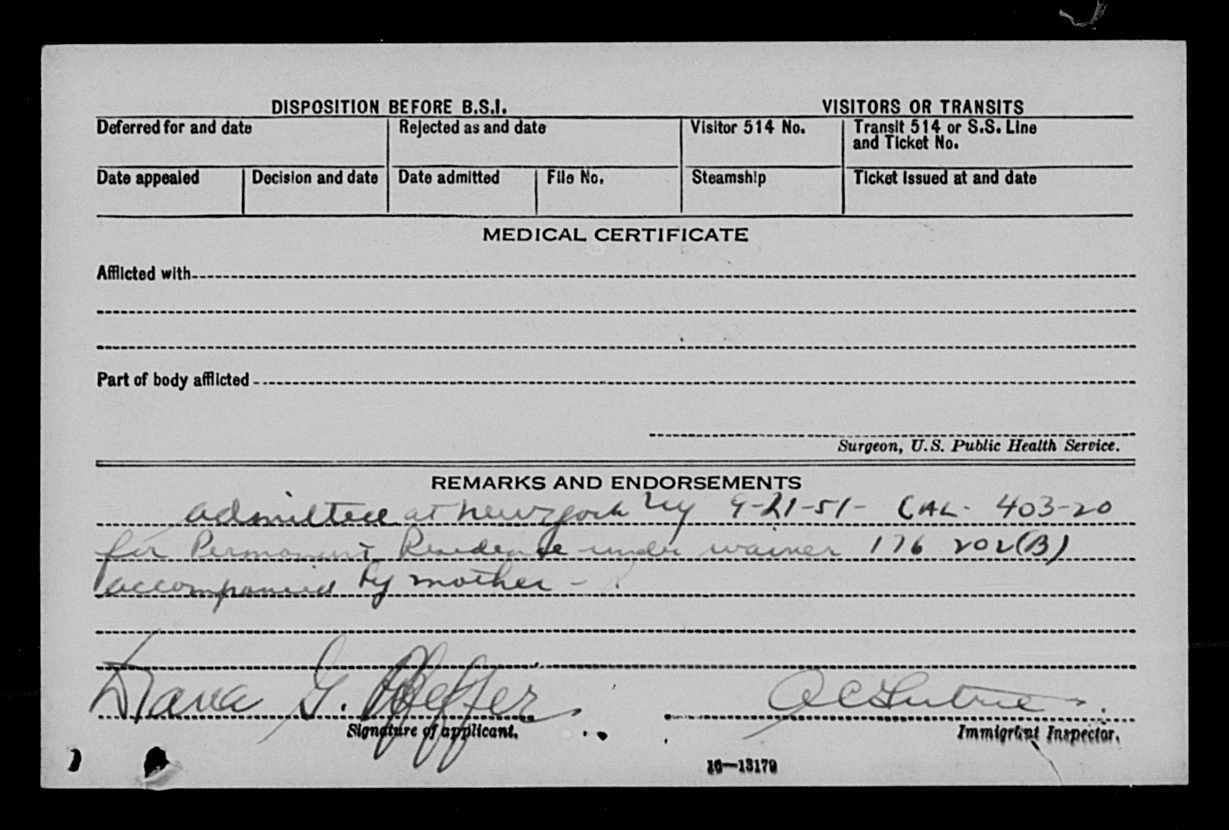 DISPOSITION BEFORE B.S.I. VISITORS OR TRANSITS
Deferred for and date Rejected as and date Visitor 514 No. Transit 514 or S.S. Line and Ticket No.
Date appealed Decision and date Date admitted File No. Steamship Ticket issued at and date
MEDICAL CERTIFICATE
Afflicted with
Part of body afflicted
Surgeon, U.S. Public Health Service.
REMARKS AND ENDORSEMENTS
admitted at New York NY 9-21-51- CAL- 403-20
for Permanent Residence under waiver 176 202(B)
accompanied by mother -
G. Pfeffer
Signature of applicant. Immigrant Inspector.
16—13179